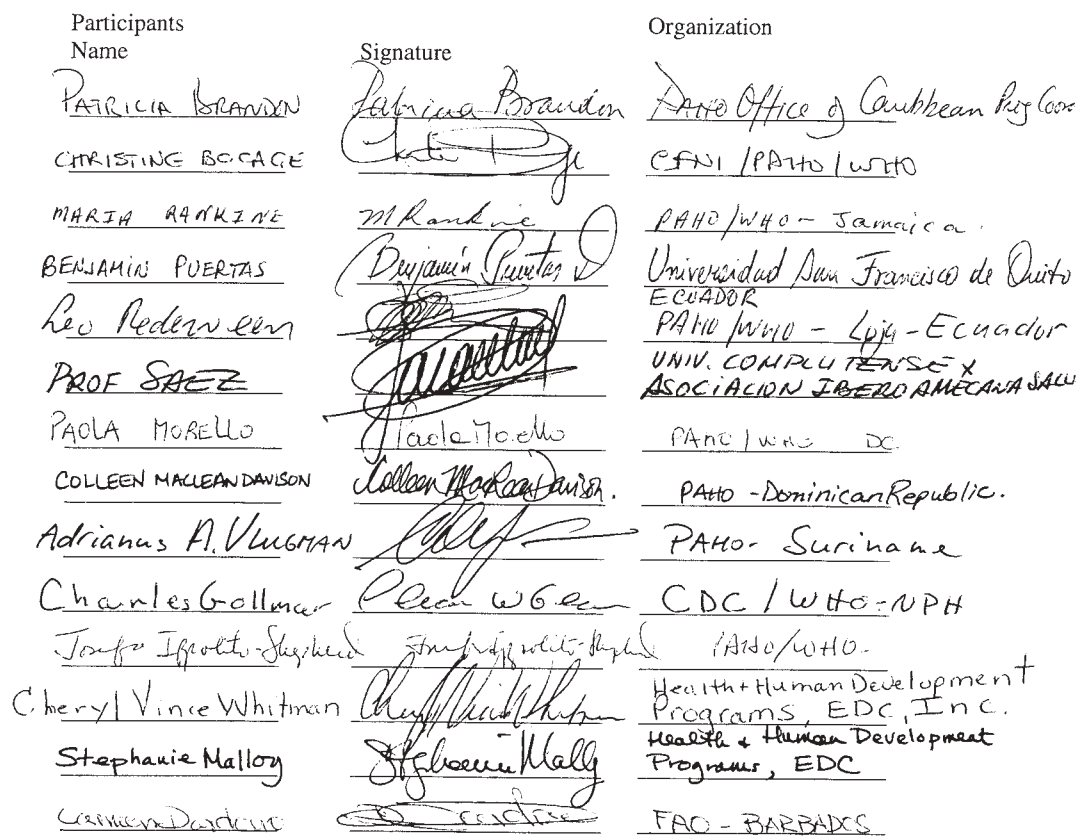 Participants
Name Signature Organization
PATRICIA BRANDON Patricia Brandon PAHO Office of Caribbean Prog Coor
CHRISTINE BOCAGE CFNI/PAHO/WHO
MARIA RANKINE MRankine PAHO/WHO - Jamaica.
BENJAMIN PUERTAS Benjamin Puertas D Universidad San Francisco de Quito
ECUADOR
Leo PAHO/WHO - Loja - Ecuador
PROF SAEZ UNIV. COMPLUTENSE Y
ASOCIACION IBEROAMECANA SALU
PAOLA MORELLO Paola Morello PAHO/WHO DC
COLLEEN MACLEAN DAVISON Colleen MacLean Davison. PAHO - Dominican Republic.
Adrianus A. VLUGMAN PAHO - Suriname
Charles Gollmar CDC / WHO - NPH
Josefa Ippolito-Shepherd Josefa Ippolito-Shepherd PAHO/WHO -
Cheryl Vince Whitman Cheryl Vince Whitman Health + Human Development
Programs, EDC, Inc.
Stephanie Malloy Stephanie Malloy Health & Human Development
Programs, EDC
Carmen Dardano FAO - BARBADOS